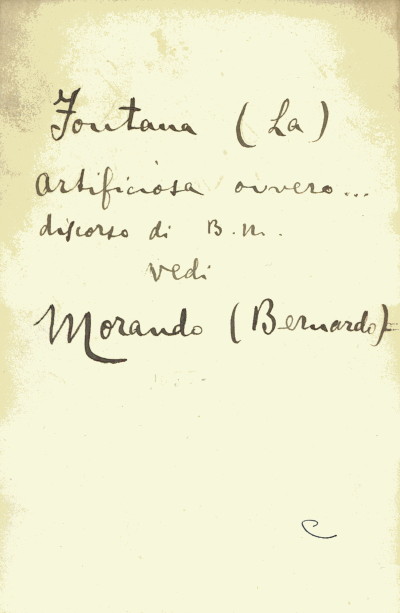 Fontana (La)
artificiosa ovvero...
discorso di B. M.
vedi
Morando (Bernardo)=